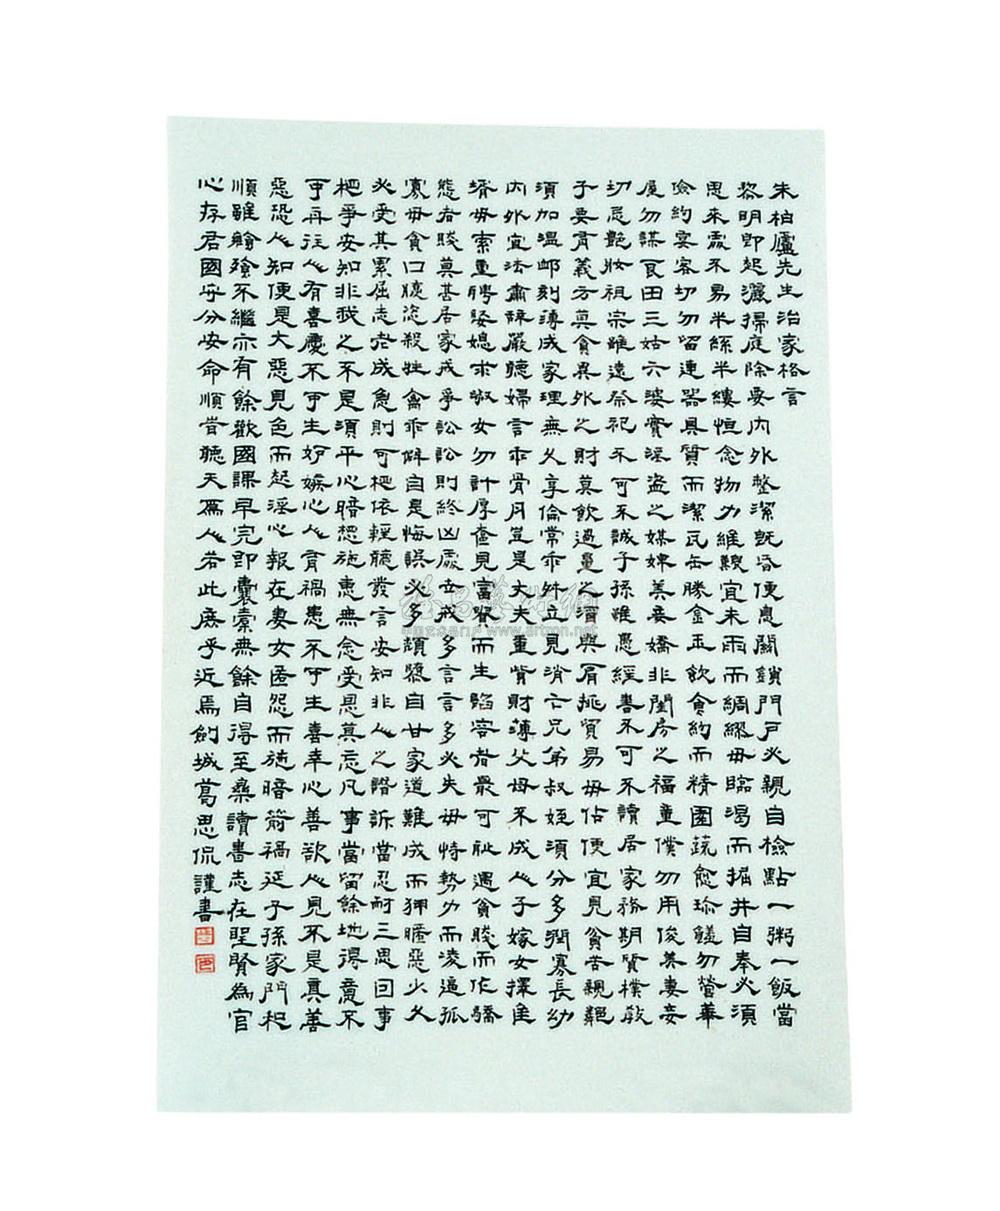 朱柏廬先生治家格言
黎明即起灑掃庭除要內外整潔既昏便息關鎖門戶必親自檢點一粥一飯當
思來處不易半絲半縷恒念物力維艱宜未雨而綢繆毋臨渴而掘井自奉必須
儉約宴客切勿留連器具質而潔瓦缶勝金玉飲食約而精園蔬愈珍饈勿營華
屋勿謀良田三姑六婆實淫盜之媒婢美妾嬌非閨房之福童僕勿用俊美妻妾
切忌艷妝祖宗雖遠祭祀不可不誠子孫雖愚經書不可不讀居家務期質樸教
子要有義方莫貪意外之財莫飲過量之酒與肩挑貿易毋佔便宜見貧苦親鄰
須加溫卹刻薄成家理無久享倫常乖舛立見消亡兄弟叔姪須分多潤寡長幼
內外宜法肅辭嚴聽婦言乖骨肉豈是丈夫重貲財薄父母不成人子嫁女擇佳
壻毋索重聘娶媳求淑女勿計厚奩見富貴而生諂容者最可恥遇貧賤而作驕
態者賤莫甚居家戒爭訟訟則終凶處世戒多言言多必失毋恃勢力而凌逼孤
寡毋貪口腹恣殺牲禽乖僻自是悔誤必多頹惰自甘家道難成而狎暱惡少久
必受其累屈志老成急則可相依輕聽發言安知非人之譖訴當忍耐三思因事
相爭安知非我之不是須平心暗想施惠無念受恩莫忘凡事當留餘地得意不
可再往人有喜慶不可生妒嫉心人有禍患不可生喜幸心善欲人見不是真善
惡恐人知便是大惡見色而起淫心報在妻女匿怨而施暗箭禍延子孫家門和
順雖饔飧不繼亦有餘歡國課早完即囊橐無餘自得至樂讀書志在聖賢為官
心存君國守分安命順時聽天為人若此庶乎近焉劍城葛思侃謹書